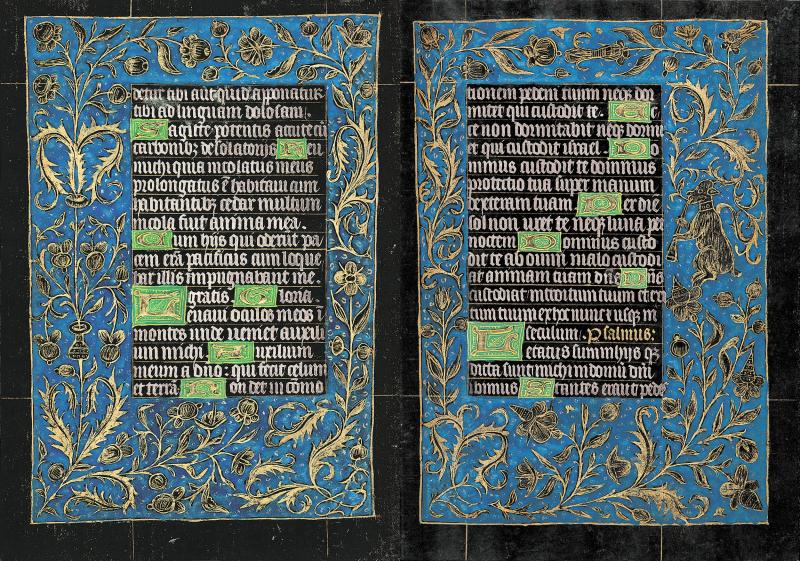 detur tibi aut quid apponatur
tibi ad linguam dolosam.
Sagitte potentis acute cū
carbonibꝫ desolatorijs Heu
michi quia incolatus meus
prolongatus ē habitaui cum
habitātibꝫ cedar multum
incola fuit anima mea.
Cum hijs qui oderūt pa
cem erā pacificus cum loque
bar illis impugnabant me
gratis Gloria.
Leuaui oculos meos ī
montes unde veniet auxili
um michi Auxilium
meum a dño: qui fecit celum
et terrā Non det in cōmo
tionem pedem tuum neqꝫ dor
mitet qui custodit te. Ec
ce non dormitabit neqꝫ dormi
et qui custodit israel. Do
minus custodit te dominus
protectio tua super manum
dexteram tuam Per die
sol non uret te neqꝫ luna pe
noctem Dominus custo
dit te ab omni malo custodi
at animam tuam dñs Dñs
custodiat introitum tuum et ex
itum tuum ex hoc nunc et usqꝫ in
seculum. Psalmus:
Letatus sum in hijs q̄
dicta sunt michi in domū dñi
ibimus Stantes erant pede